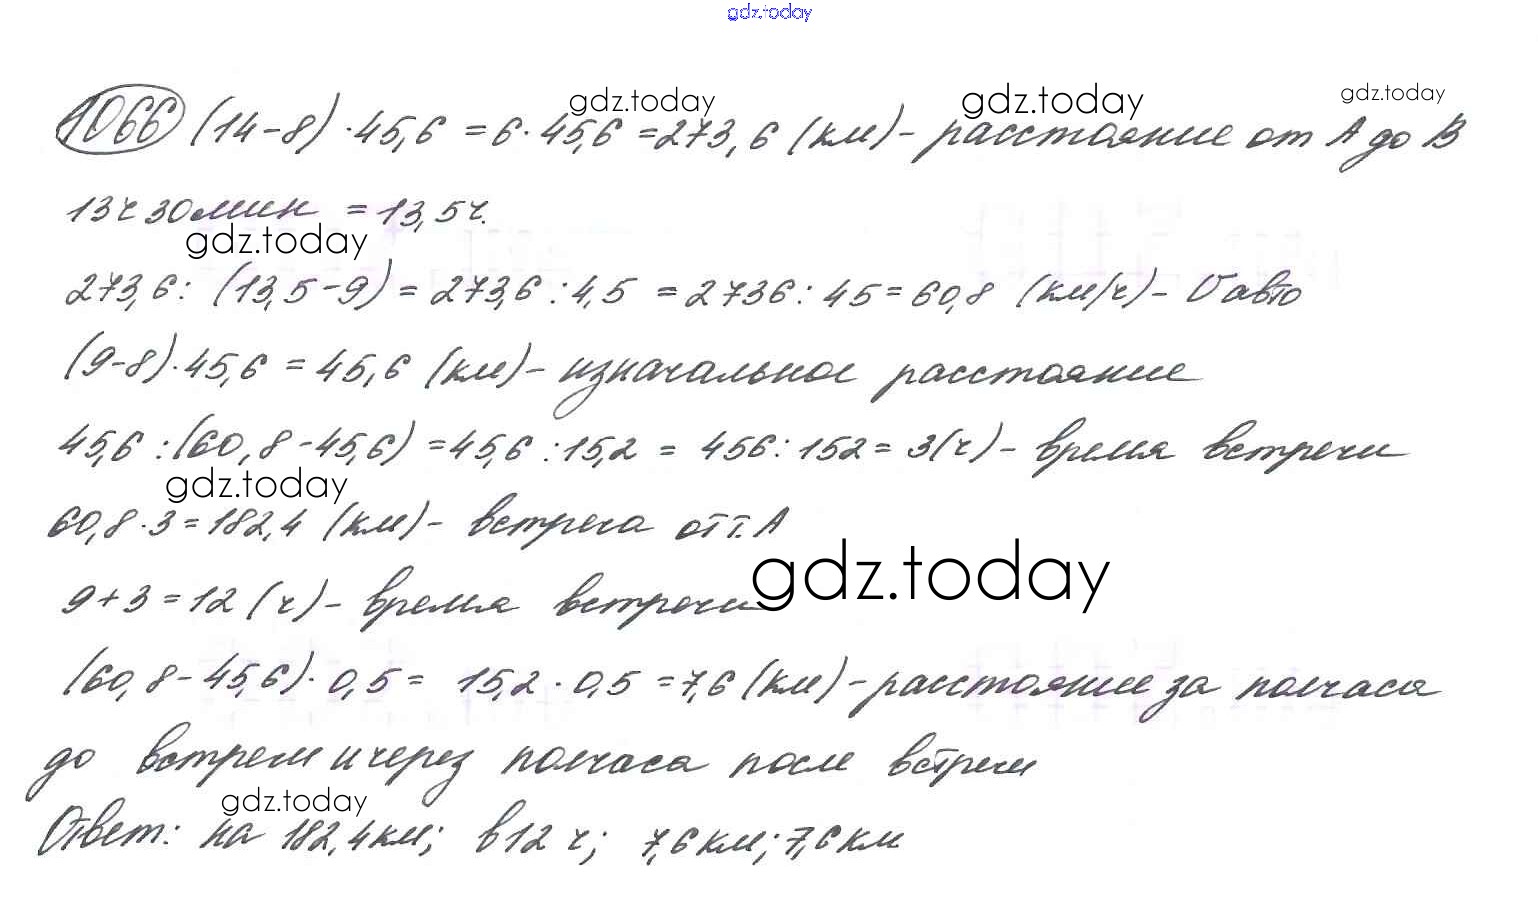 gdz.today
1066 (14-8) · 45,6 = 6 · 45,6 = 273,6 (км) - расстояние от А до В
gdz.today gdz.today gdz.today
13ч 30 мин = 13,5ч.
gdz.today
273,6 : (13,5-9) = 273,6 : 4,5 = 2736 : 45 = 60,8 (км/ч) - V авто
(9-8) · 45,6 = 45,6 (км) - изначальное расстояние
45,6 : (60,8 - 45,6) = 45,6 : 15,2 = 456 : 152 = 3(ч) - время встречи
gdz.today
60,8 · 3 = 182,4 (км) - встреча от т. А
gdz.today
9 + 3 = 12 (ч) - время встречи
(60,8 - 45,6) · 0,5 = 15,2 · 0,5 = 7,6 (км) - расстояние за полчаса
до встречи и через полчаса после встречи
gdz.today
Ответ: на 182,4 км; в 12 ч; 7,6 км; 7,6 км